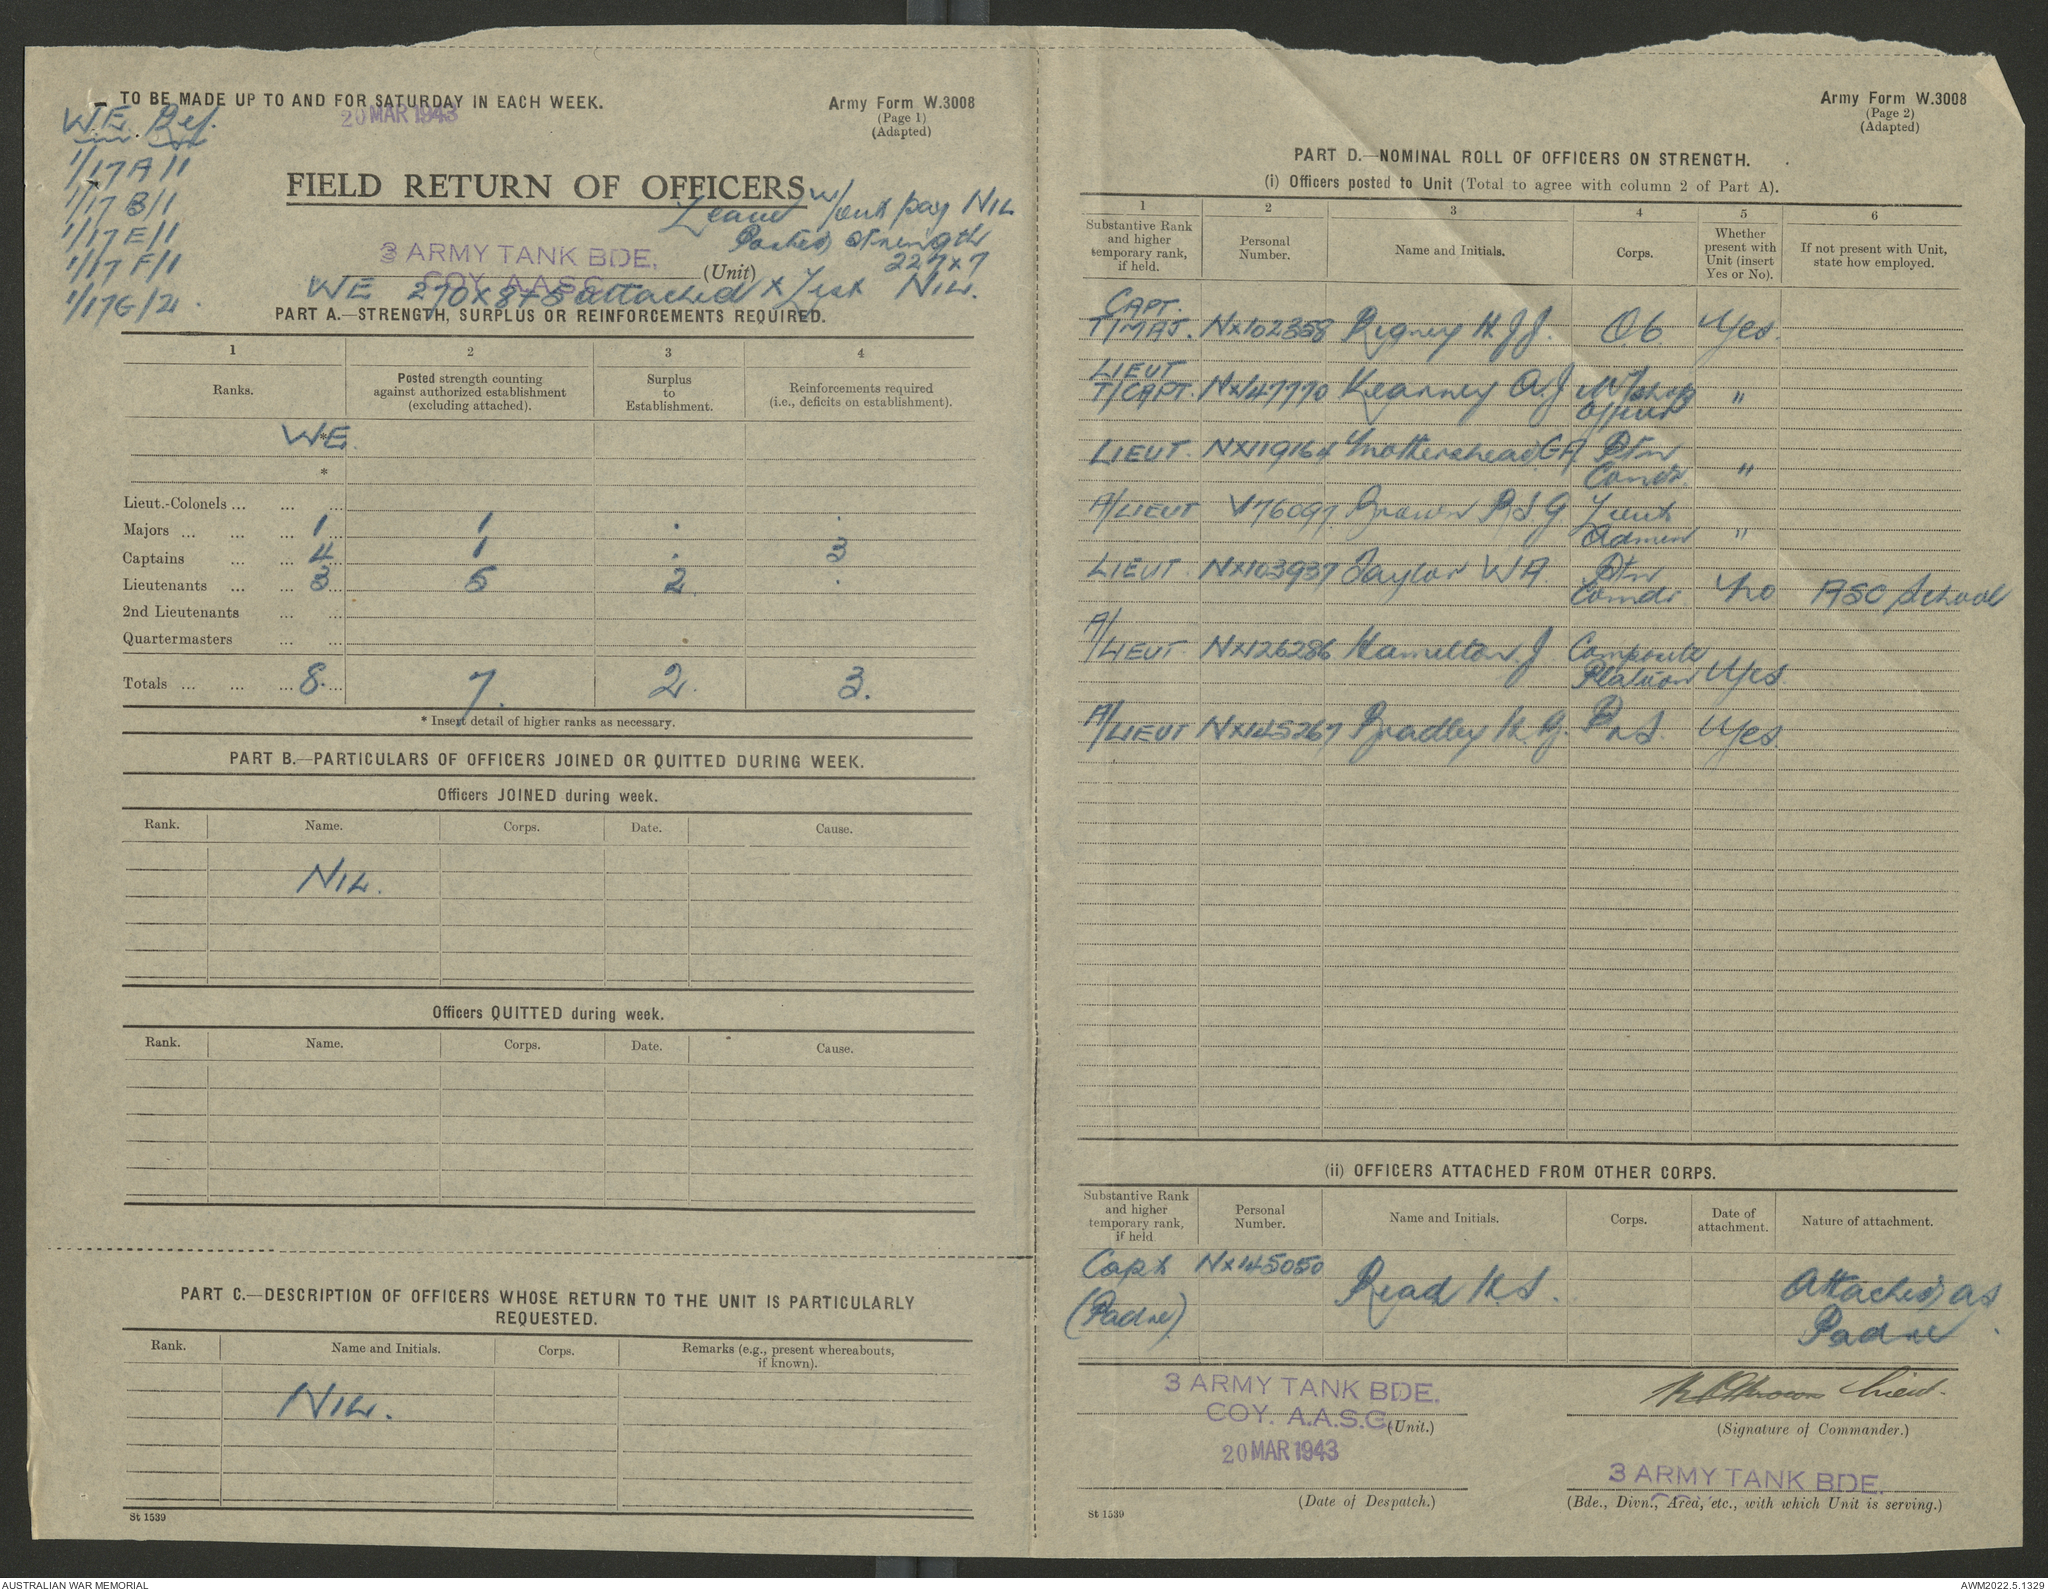 TO BE MADE UP TO AND FOR SATURDAY IN EACH WEEK.
20 MAR 1943
Army Form W.3008
(Page 1)
(Adapted)
WE Ref.
1/17A/1
1/17 B/1
1/17E/1
1/17 F/1
1/17G/2
FIELD RETURN OF OFFICERS
Leave w/out pay NIL
Posted strength
227 x 7
3 ARMY TANK BDE.
COY. A.A.S.C.
(Unit)
WE 270 x 8 + 5 attached x List NIL.
PART A.—STRENGTH, SURPLUS OR REINFORCEMENTS REQUIRED.
1 2 3 4
Ranks. Posted strength counting against authorized establishment (excluding attached). Surplus to Establishment. Reinforcements required (i.e., deficits on establishment).
WE *
*
Lieut.-Colonels ... ... ...
Majors ... ... ... 1 1 . .
Captains ... ... 4 1 . 3
Lieutenants ... ... 3 5 2 .
2nd Lieutenants ... ...
Quartermasters ... ...
Totals ... ... ... 8. 7. 2. 3.
* Insert detail of higher ranks as necessary.
PART B.—PARTICULARS OF OFFICERS JOINED OR QUITTED DURING WEEK.
Officers JOINED during week.
Rank. Name. Corps. Date. Cause.
NIL.
Officers QUITTED during week.
Rank. Name. Corps. Date. Cause.
PART C.—DESCRIPTION OF OFFICERS WHOSE RETURN TO THE UNIT IS PARTICULARLY
REQUESTED.
Rank. Name and Initials. Corps. Remarks (e.g., present whereabouts, if known).
NIL.
St 1539
Army Form W.3008
(Page 2)
(Adapted)
PART D.—NOMINAL ROLL OF OFFICERS ON STRENGTH.
(i) Officers posted to Unit (Total to agree with column 2 of Part A).
1 2 3 4 5 6
Substantive Rank and higher temporary rank, if held. Personal Number. Name and Initials. Corps. Whether present with Unit (insert Yes or No). If not present with Unit, state how employed.
CAPT.
T/MAJ. NX102358 Rigney H.J.J. OC Yes.
LIEUT
T/CAPT. NX147770 Kearney A.J W/shop
Officer "
LIEUT. NX119164 Mothershead GA Ptn
Comdr "
A/LIEUT V76097 Brown R S G Lieut
Admin "
LIEUT NX103937 Taylor W A Ptn
Comdr No ASC School
A/
LIEUT. NX126286 Hamilton J Composite
Platoon Yes
A/
LIEUT NX145267 Bradley K. G. Yes.
(ii) OFFICERS ATTACHED FROM OTHER CORPS.
Substantive Rank and higher temporary rank, if held Personal Number. Name and Initials. Corps. Date of attachment. Nature of attachment.
Capt NX145050 Read K.S. Attached as
(Padre) Padre
3 ARMY TANK BDE.
COY. A.A.S.C.
(Unit.)
20 MAR 1943
(Date of Despatch.)
Brown Lieut.
(Signature of Commander.)
3 ARMY TANK BDE.
(Bde., Divn., Area, etc., with which Unit is serving.)
St 1539
AUSTRALIAN WAR MEMORIAL
AWM2022.5.1329